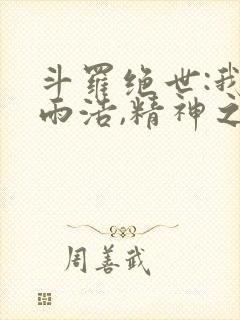 斗罗绝世:我
雨浩,精神之
周善武